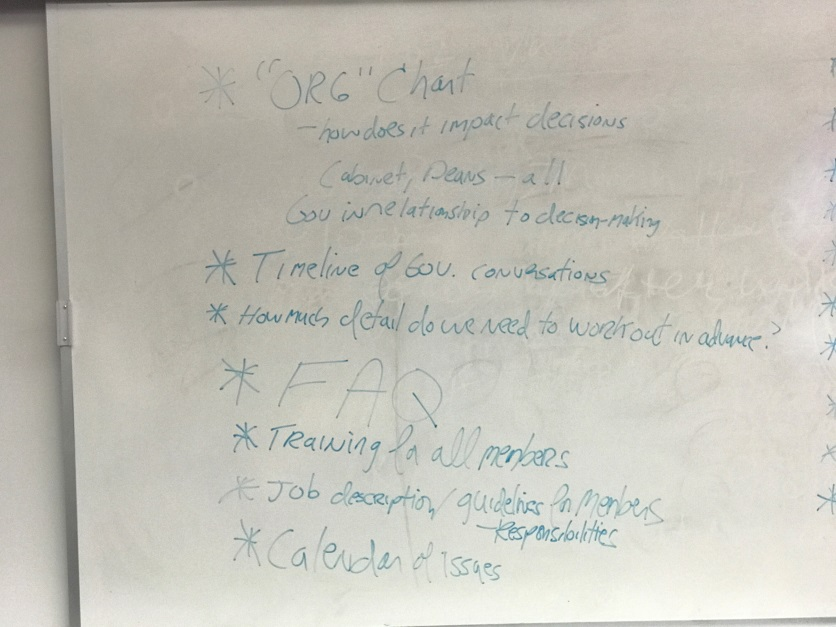 * "ORG" Chart
- how does it impact decisions
Cabinet, Deans - all
Gov in relationship to decision-making
* Timeline of Gov. conversations
* How much detail do we need to workout in advance?
* FAQ
* Training for all members
* Job description/guidelines for Members
- Responsibilities
* Calendar of issues